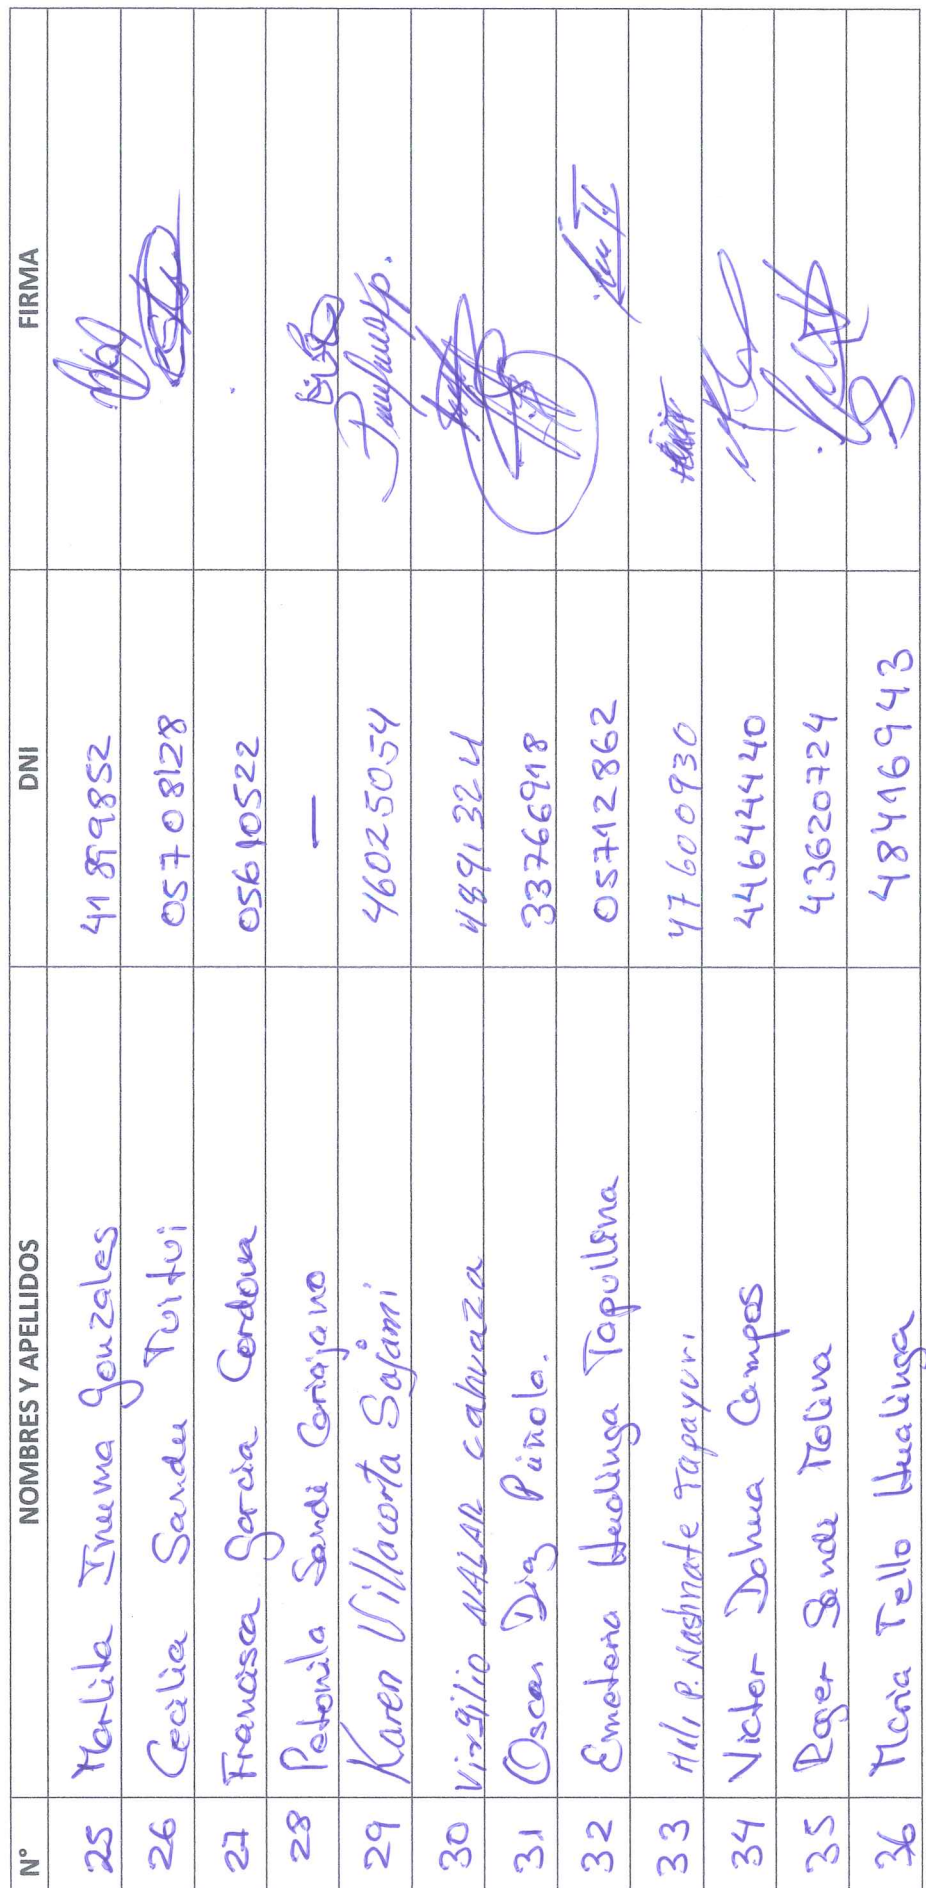 N° NOMBRES Y APELLIDOS DNI FIRMA
25 Marlita Inuma Gonzales 41899852
26 Cecilia Sandu Tuitui 05708128
27 Francisca Garcia Cordova 05610522
28 Petronila Sandi Cariajano —
29 Karen Villacorta Sajami 46025054
30 Virgilio NALAR cahuaza
31 Oscar Diaz Piñola. 33766918
32 Emeteria Hualinga Tapullima 05712862
33 P. Nashnate Tapayuri 47600930
34 Victor Dahua Campos 44644440
35 Roger Sandi Molina 43620724
36 Maria Tello Hualinga 48416943